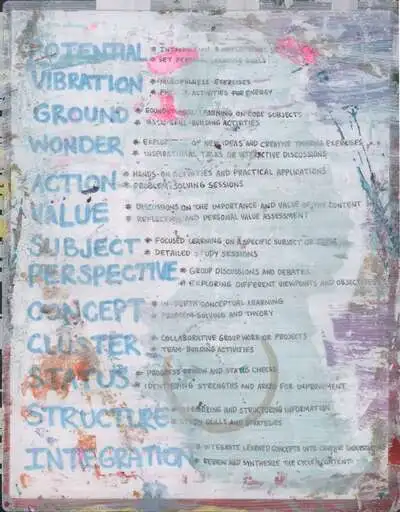 POTENTIAL
* SET GOALS
VIBRATION * MINDFULNESS EXERCISES
* ACTIVITIES FOR ENERGY
GROUND * LEARNING ON CORE SUBJECTS
* BASIC SKILL-BUILDING ACTIVITIES
WONDER * NEW IDEAS AND CREATIVE THINKING EXERCISES
* INSPIRATIONAL TALKS OR INTERACTIVE DISCUSSIONS
ACTION * HANDS-ON ACTIVITIES AND PRACTICAL APPLICATIONS
* PROBLEM-SOLVING SESSIONS
VALUE * DISCUSSIONS ON THE IMPORTANCE AND VALUE OF THE CONTENT
* REFLECTION AND PERSONAL VALUE ASSESSMENT
SUBJECT * FOCUSED LEARNING ON A SPECIFIC SUBJECT OR
* DETAILED STUDY SESSIONS
PERSPECTIVE * GROUP DISCUSSIONS AND DEBATES
* EXPLORING DIFFERENT VIEWPOINTS AND
CONCEPT * IN-DEPTH CONCEPTUAL LEARNING
* PROBLEM-SOLVING AND THEORY
CLUSTER * COLLABORATIVE GROUP WORK OR PROJECTS
* TEAM-BUILDING ACTIVITIES
STATUS * PROGRESS REVIEW AND STATUS CHECKS
* IDENTIFYING STRENGTHS AND AREAS FOR IMPROVEMENT
STRUCTURE * AND STRUCTURING INFORMATION
* STUDY SKILLS AND STRATEGIES
INTEGRATION * INTEGRATE LEARNED CONCEPTS INTO
* REVIEW AND SYNTHESIZE THE CYCLE CONTENT